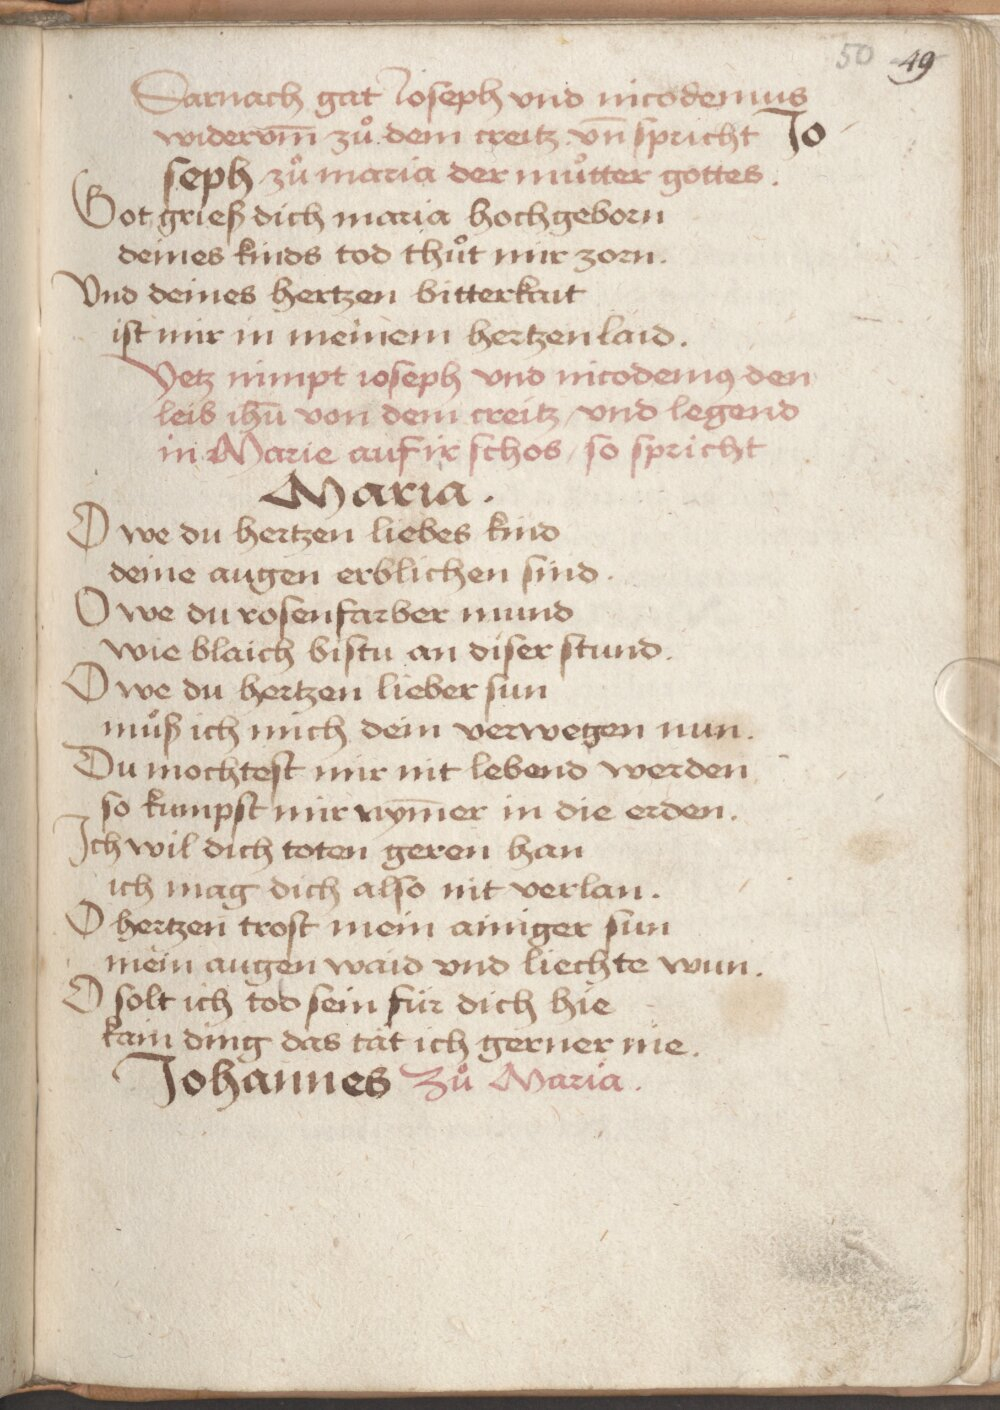 50 49
Darnach gat Joseph vnd nicodemus
widervm̄ zů dem creitz vn̄ spricht Jo
seph zů maria der můtter gottes.
Got grieß dich maria hochgeborn
deines kinds tod thůt mir zorn.
Vnd deines hertzen bitterkait
ist mir in meinem hertzen laid.
Yetz nimpt ioseph vnd nicodemꝰ den
leib ihū von dem creitz / vnd legend
in Marie auf ir schos / so spricht
Maria.
O we du hertzen liebes kind
deine augen erblichen sind.
O we du rosenfarber mund
wie blaich bistu an diser stund.
O we du hertzen lieber sun
můß ich mich dein verwegen nun.
Du mochtest mir nit lebend werden
so kumpst mir nym̄er in die erden.
Ich wil dich toten geren han
ich mag dich also nit verlan.
O hertzen trost mein ainiger sun
mein augen waid vnd liechte wun.
O solt ich tod sein für dich hie
kain ding das tät ich gerner nie.
Johannes zů Maria.